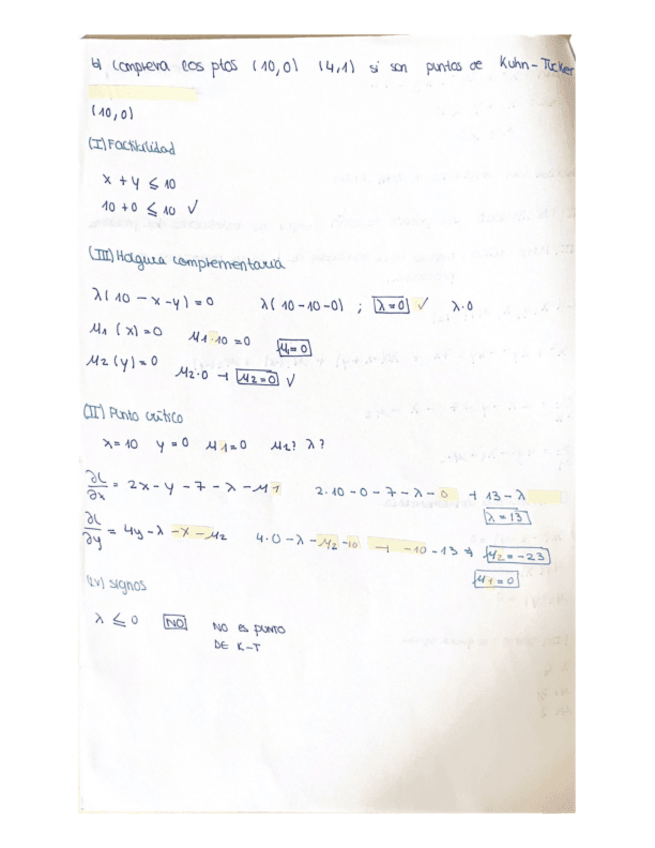 b) Comprueva los ptos (10,0) (4,1) si son puntos de Kuhn-Tucker
(10,0)
(I) Factibilidad
x + y ≤ 10
10 + 0 ≤ 10 ✓
(III) Holgura complementaria
λ(10 - x - y) = 0 λ(10-10-0) ; λ=0 ✓ λ·0
μ1 (x) = 0 μ1·10 = 0 μ1=0
μ2 (y) = 0 μ2·0 → μ2=0 ✓
(II) Punto crítico
x=10 y=0 μ1=0 μ2? λ?
∂L/∂x = 2x - y - 7 - λ - μ1 2·10 - 0 - 7 - λ - 0 → 13 - λ
λ=13
∂L/∂y = 4y - λ - x - μ2 4·0 - λ - μ2 - 10 → -10 - 13 → μ2 = -23
μ1=0
(IV) Signos
λ ≤ 0 NO NO es PUNTO
DE K-T